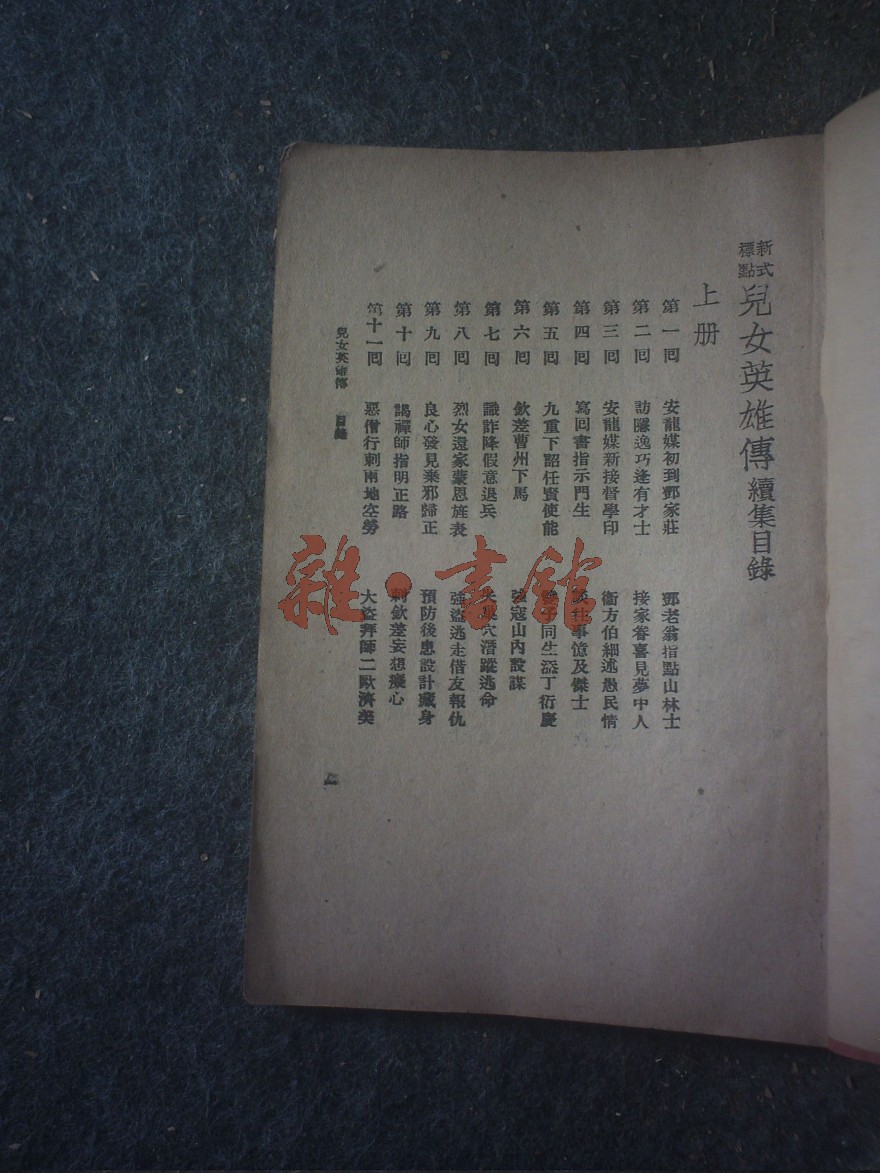 新式標點兒女英雄傳續集目錄
上册
第一回 安龍媒初到鄧家莊 鄧老翁指點山林士
第二回 訪隱逸巧逢有才士 接家眷喜見夢中人
第三回 安龍媒新接督學印 衞方伯細述愚民情
第四回 寫回書指示門生 往事憶及傑士
第五回 九重下詔任賢使能 子同生添丁衍慶
第六回 欽差曹州下馬 強寇山內設謀
第七回 識詐降假意退兵 穴潛蹤逃命
第八回 烈女還家蒙恩旌表 強盜逃走借友報仇
第九回 良心發見棄邪歸正 預防後患設計藏身
第十回 謁禪師指明正路 刺欽差妄想癡心
第十一回 惡僧行刺兩地空勞 大盜拜師二歐濟美
兒女英雄傳 目錄
雜·書館